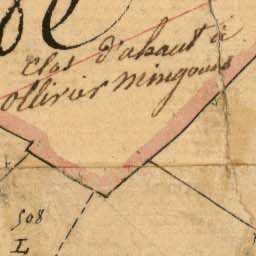 Clos d'ahaut à
ollivier mingouis
508
L